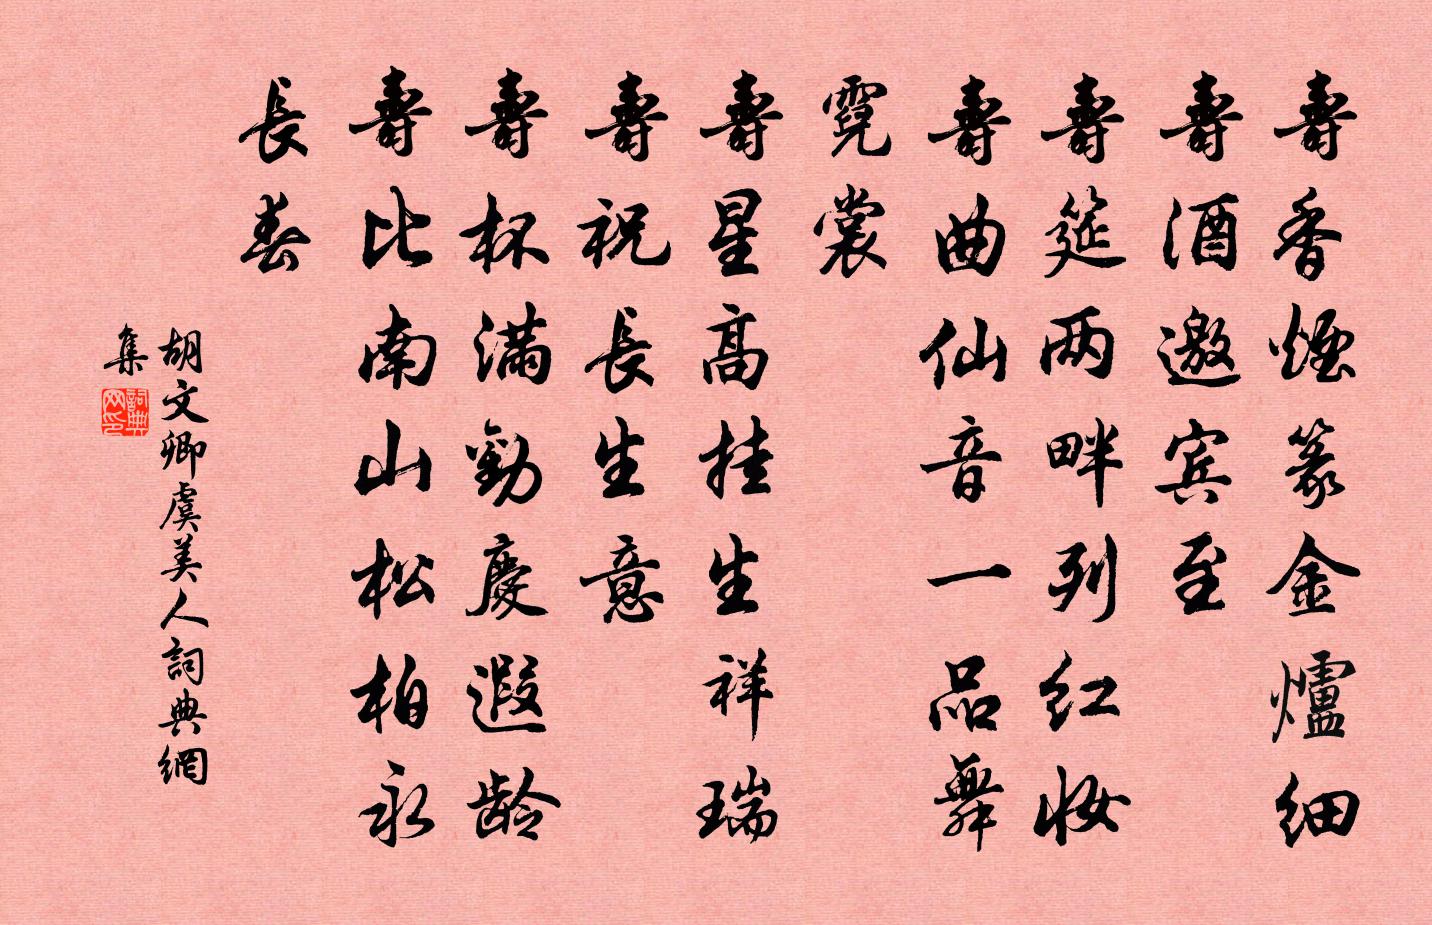 壽香煙篆金爐細
壽酒邀宾至
壽筵两畔列红妆
壽曲仙音一品舞
霓裳
壽星高挂生祥瑞
壽祝長生意
壽杯满勸慶遐龄
壽比南山松柏永
長春
胡文卿虞美人詞典網
集
詞典
网印